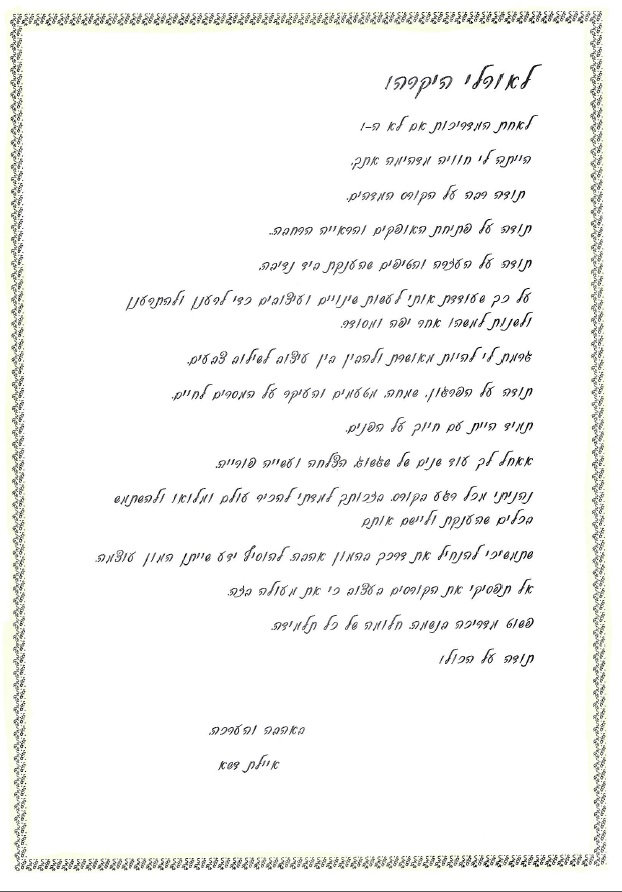 לאורלי היקרה!
לאחת המדריכות אם לא ה-!
הייתה לי חוויה מדהימה אתך.
תודה רבה על הקורס המדהים.
תודה על פתיחת האופקים והראייה הרחבה.
תודה על העזרה והטיפים שהענקת ביד נדיבה.
על כך שעודדת אותי לעשות שינויים ועיצובים כדי לרענן ולהתרענן
ולשנות למשהו אחר יפה ומסודר.
גרמת לי להיות מאושרת ולהבין בין עיצוב לשילוב צבעים.
תודה על הפרגון, שמחה, מטעמים והעיקר על המסרים לחיים.
תמיד היית עם חיוך על הפנים.
אאחל לך עוד שנים של שגשוג הצלחה ועשייה פורייה.
נהניתי מכל רגע בקורס. בזכותך למדתי להכיר עולם ומלואו ולהשתמש
בכלים שהענקת וליישם אותם
שתמשיכי להנחיל את דרכך בהמון אהבה. להוסיף ידע שייתן המון עוצמה.
אל תפסיקי את הקורסים בעצוב כי את מעולה בזה.
פשוט מדריכה בנשמה. חלומה של כל תלמידה.
תודה על הכול!
באהבה והערכה.
איילת